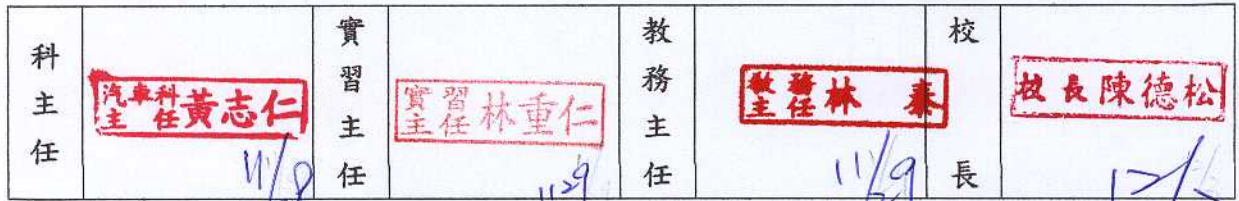 科主任
汽車科主任 黃志仁
實習主任
實習主任 林重仁
1129
教務主任
教務主任 林 泰
校長
校長 陳德松